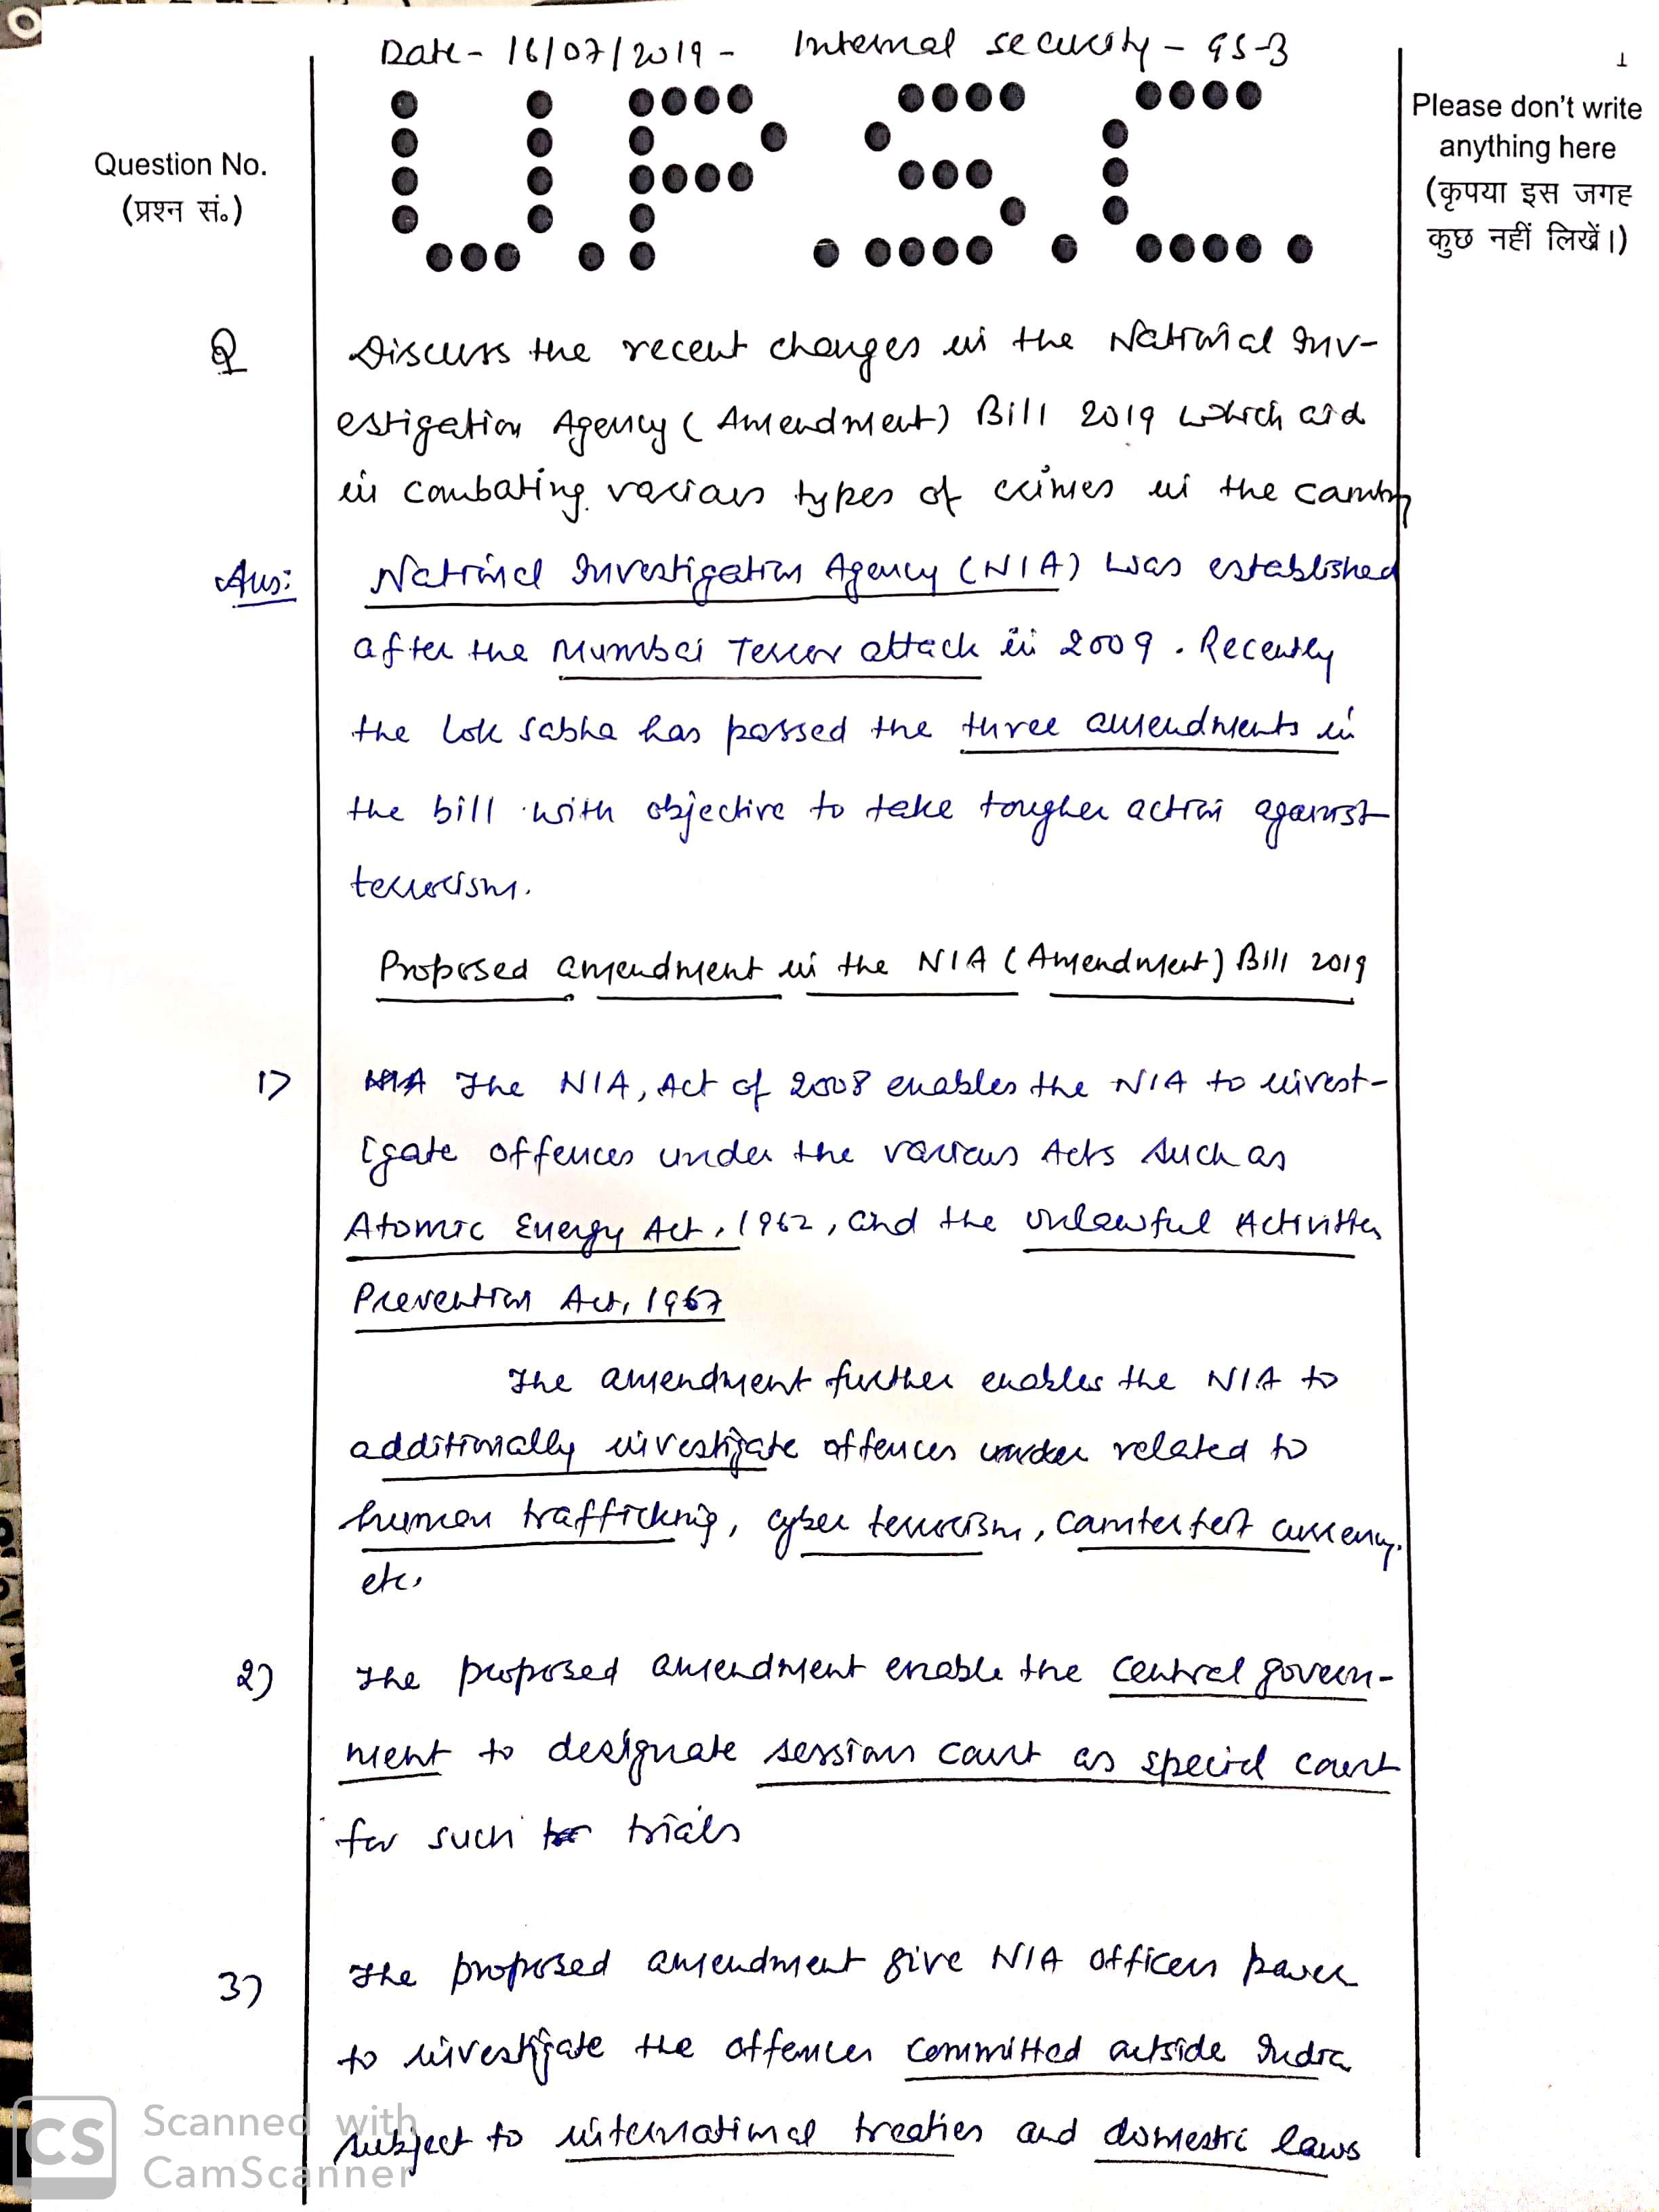 Date - 16/07/2019 - Internal security - GS-3
1
UPSC
Please don't write
anything here
(कृपया इस जगह
कुछ नहीं लिखें।)
Question No.
(प्रश्न सं.)
Q Discuss the recent changes in the National Inv-
estigation Agency (Amendment) Bill 2019 which aid
in combating various types of crimes in the country
Ans: National Investigation Agency (NIA) was established
after the Mumbai Terror attack in 2009. Recently
the lok sabha has passed the three amendments in
the bill with objective to take tougher action against
terrorism.
Proposed amendment in the NIA (Amendment) Bill 2019
1) NIA The NIA, Act of 2008 enables the NIA to invest-
igate offences under the various Acts such as
Atomic Energy Act, 1962, and the Unlawful Activities
Prevention Act, 1967
The amendment further enables the NIA to
additionally investigate offences under related to
human trafficking, cyber terrorism, counterfeit currency.
etc.
2) The proposed amendment enable the central govern-
ment to designate sessions court as special court
for such trials
3) The proposed amendment give NIA officers power
to investigate the offences committed outside India
subject to international treaties and domestic laws
CS Scanned with
CamScanner